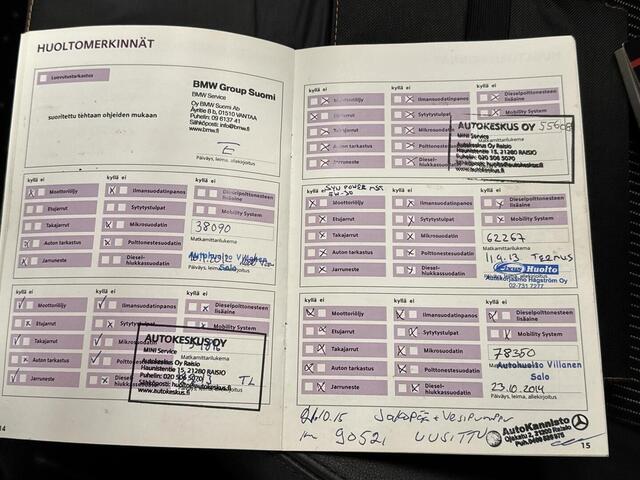 HUOLTOMERKINNÄT
Luovutustarkastus
suoritettu tehtaan ohjeiden mukaan
BMW Group Suomi
BMW Service
Oy BMW Suomi Ab
Äyritie 8 b, 01510 VANTAA
Puhelin: 09 6137 41
Sähköposti: info@bmw.fi
www.bmw.fi
Päiväys, leima, allekirjoitus
kyllä ei
kyllä ei
kyllä ei
Moottoriöljy
Ilmansuodatinpanos
Dieselpolttonesteen lisäaine
Etujarrut
Sytytystulpat
Mobility System
Takajarrut
Mikrosuodatin
38090
Matkamittarilukema
Auton tarkastus
Polttonestesuodatin
Autohuolto Villanen
Salo
Jarruneste
Diesel-
hiukkassuodatin
Päiväys, leima, allekirjoitus
kyllä ei
kyllä ei
kyllä ei
Moottoriöljy
Ilmansuodatinpanos
Dieselpolttonesteen
lisäaine
Etujarrut
Sytytystulpat
Mobility System
Takajarrut
Mikrosuodatin
Matkamittarilukema
Auton tarkastus
Jarruneste
Diesel-
hiukkassuodatin
AUTOKESKUS OY
MINI Service
Autokeskus Oy Raisio
Haunistentie 15, 21280 RAISIO
Puhelin: 020 506 5070
www.autokeskus.fi
TL
14
kyllä ei
kyllä ei
kyllä ei
Moottoriöljy
Ilmansuodatinpanos
Dieselpolttonesteen
lisäaine
Etujarrut
Sytytystulpat
Mobility System
Takajarrut
Auton tarkastus
Jarruneste
AUTOKESKUS OY
MINI Service
Autokeskus Oy Raisio
Haunistentie 15, 21280 RAISIO
Puhelin: 020 506 5070
www.autokeskus.fi
Päiväys, leima, allekirjoitus
kyllä ei
kyllä ei
Moottoriöljy
Ilmansuodatinpanos
Dieselpolttonesteen
lisäaine
Etujarrut
Sytytystulpat
Mobility System
Takajarrut
Mikrosuodatin
62267
Matkamittarilukema
Auton tarkastus
Polttonestesuodatin
11.9.13 TEEMUS
Jarruneste
Diesel-
hiukkassuodatin
Huolto
Autokorjaamo Hägström Oy
02-731 7277
kyllä ei
kyllä ei
kyllä ei
Moottoriöljy
Ilmansuodatinpanos
Dieselpolttonesteen
lisäaine
Etujarrut
Sytytystulpat
Mobility System
Takajarrut
Mikrosuodatin
78350
Matkamittarilukema
Auton tarkastus
Polttonestesuodatin
Autohuolto Villanen
Salo
Jarruneste
Diesel-
hiukkassuodatin
23.10.2014
Päiväys, leima, allekirjoitus
10.15 Jakopää + Vesipumppu
km 90521 UUSITTU
AutoKannisto
Ojakatu 2, 21200 Raisio
15